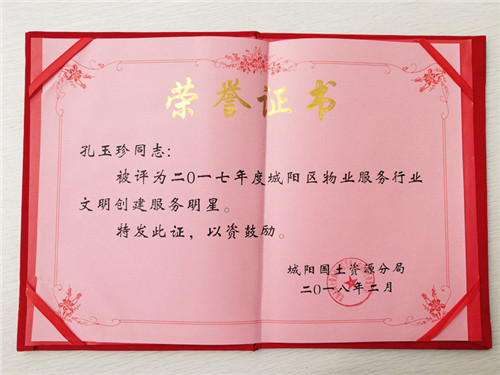 荣誉证书
孔玉珍同志：
被评为二〇一七年度城阳区物业服务行业
文明创建服务明星。
特发此证，以资鼓励。
城阳国土资源分局
二〇一八年二月